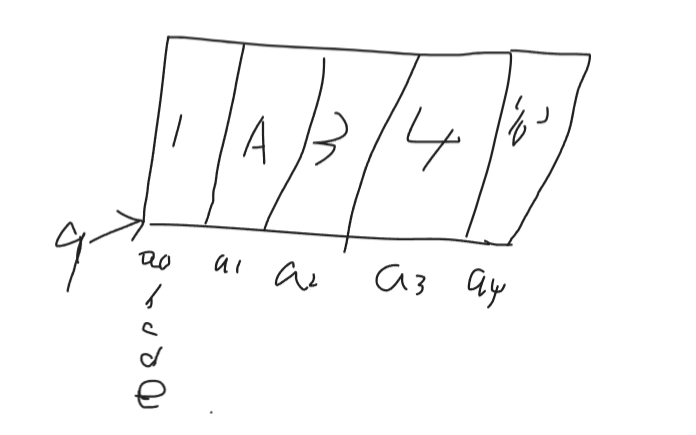 1 A 3 4
q
a0 a1 a2 a3 a4
b
c
d
e